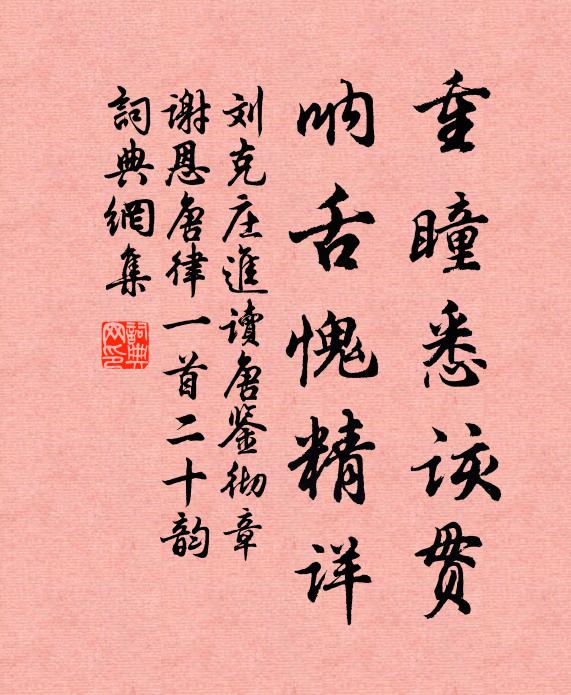 重瞳悉該贯
呐舌愧精詳
刘克庄進讀唐鉴彻章
谢恩唐律一首二十韵
詞典網集
詞典网印